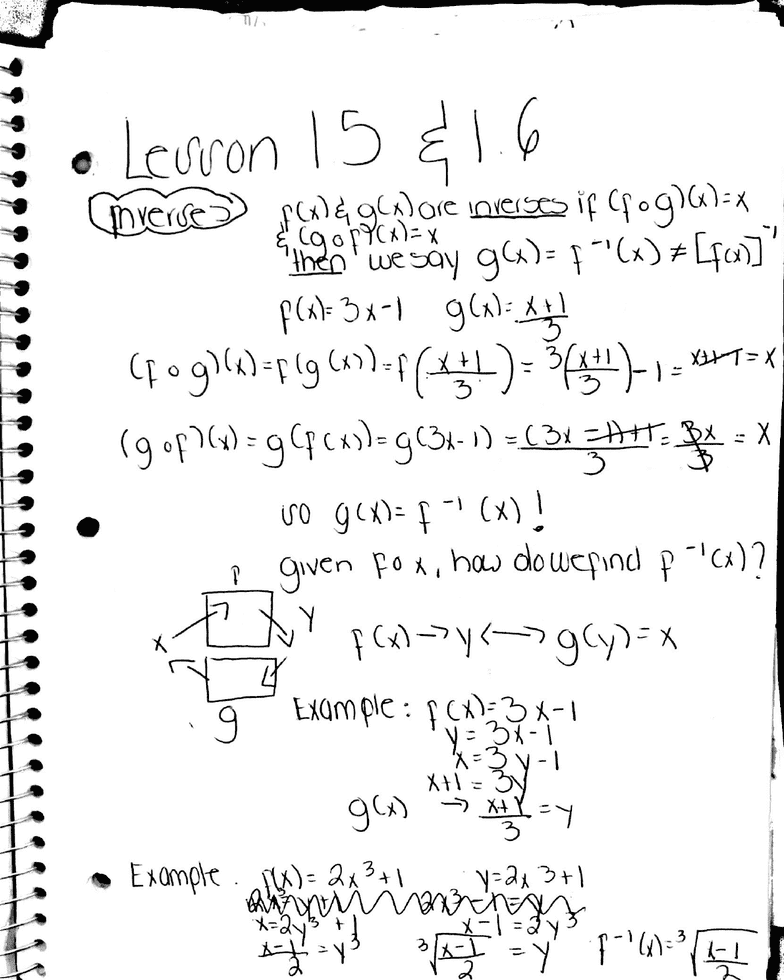 Lesson 1.5 & 1.6
Inverses
f(x) & g(x) are inverses if (f o g)(x) = x
& (g o f)(x) = x
then we say g(x) = f⁻¹(x) ≠ [f(x)]⁻¹
f(x) = 3x-1 g(x) = (x+1)/3
(f o g)(x) = f(g(x)) = f((x+1)/3) = 3((x+1)/3) - 1 = x+1-1 = x
(g o f)(x) = g(f(x)) = g(3x-1) = ((3x-1)+1)/3 = 3x/3 = x
so g(x) = f⁻¹(x)!
given f o x, how do we find f⁻¹(x)?
f
x y
f(x) → y ⟷ g(y) = x
g
Example: f(x) = 3x-1
y = 3x-1
x = 3y-1
x+1 = 3y
g(x) → (x+1)/3 = y
Example. f(x) = 2x³+1 y = 2x³+1
x = 2y³+1 x-1 = 2y³
(x-1)/2 = y³ ³√((x-1)/2) = y f⁻¹(x) = ³√((x-1)/2)